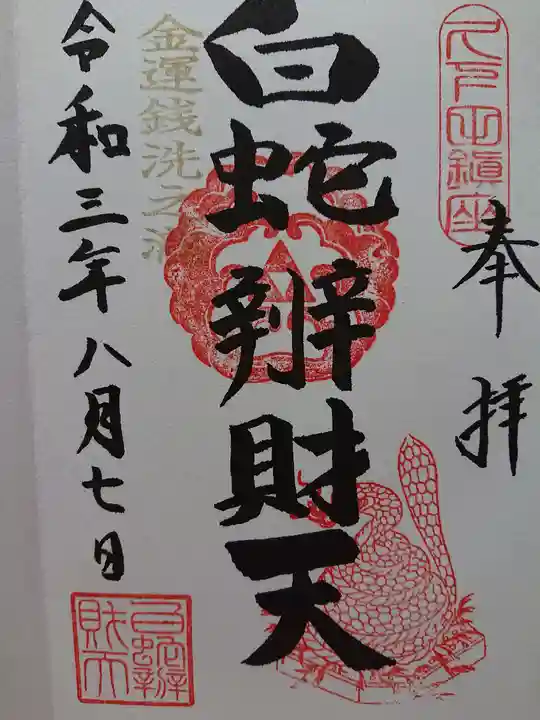 奉拝
白蛇辨財天
金運銭洗之滝
令和三年八月七日
白蛇辨財天